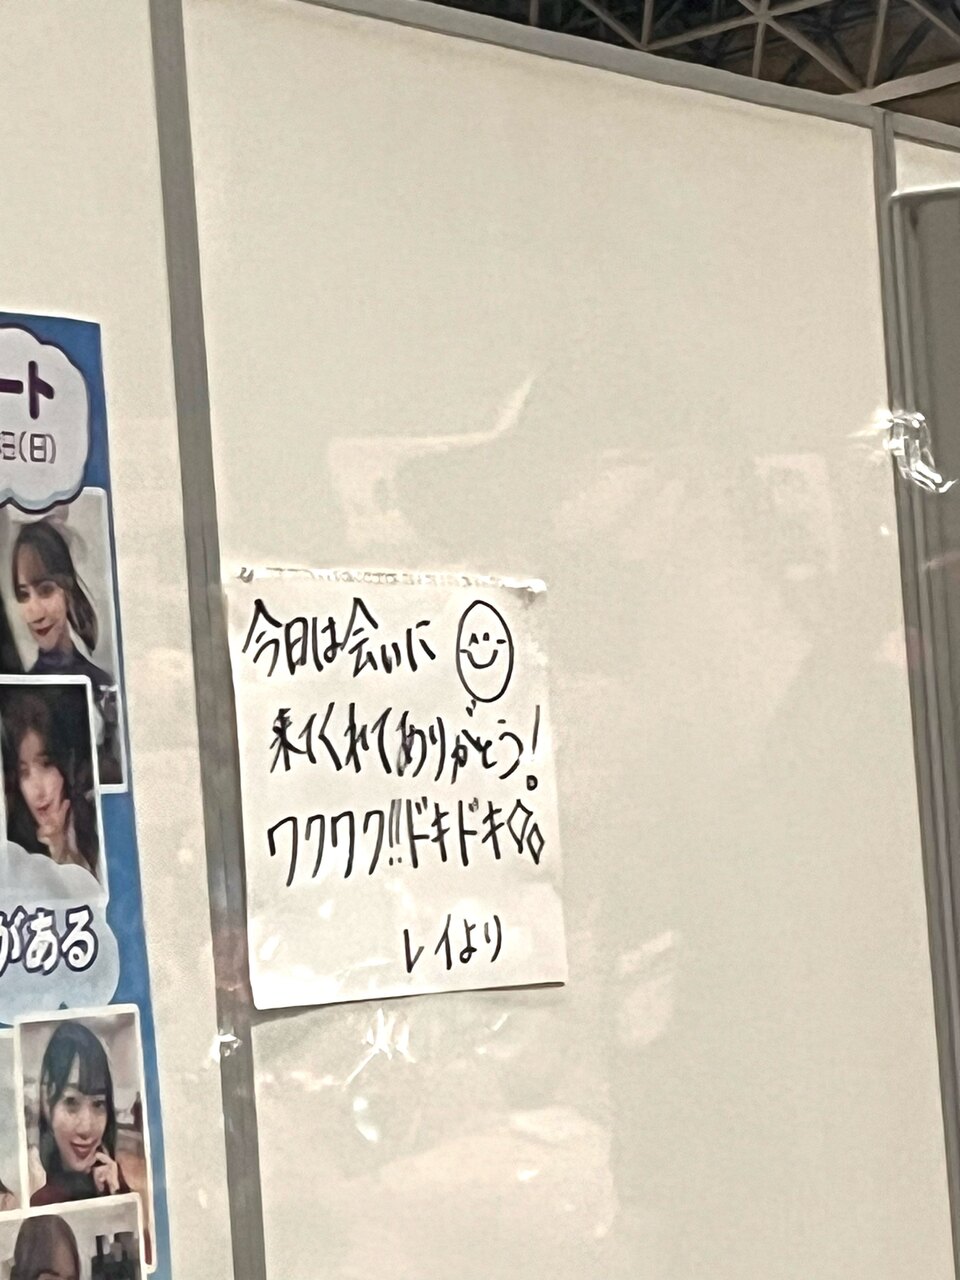 ート
(日)
がある
今日は会いに
来てくれてありがとう!
ワクワク!!ドキドキ
レイより